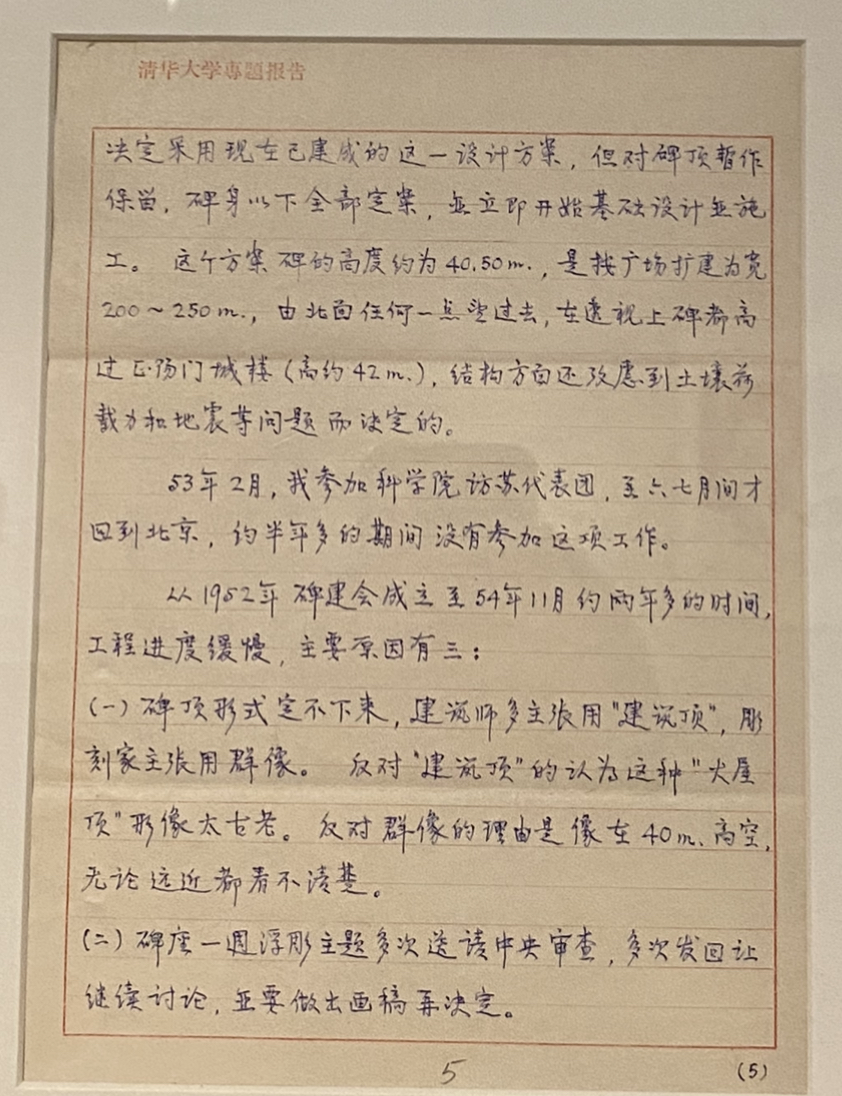 清华大学專題报告
决定采用现在已建成的这一设计方案，但对碑顶暂作
保留，碑身以下全部定案，並立即开始基础设计並施
工。 这个方案碑的高度约为40.50m.，是按广场扩建为宽
200～250m.，由北面任何一点望过去，在透视上碑都高
过正阳门城楼（高约42m.），结构方面还攷慮到土壤荷
载力和地震等问题而决定的。
53年2月，我参加科学院访苏代表团，至六七月间才
回到北京，约半年多的期间没有参加这项工作。
从1952年碑建会成立至54年11月约两年多的时间，
工程进度缓慢，主要原因有三：
(一)碑顶形式定不下来，建筑师多主张用"建筑顶"，彫
刻家主张用群像。 反对"建筑顶"的认为这种"大屋
顶"形像太古老。反对群像的理由是像在40m.高空，
无论远近都看不清楚。
(二)碑座一週浮彫主题多次送请中央审查，多次发回让
继续讨论，並要做出画稿再决定。
5
(5)